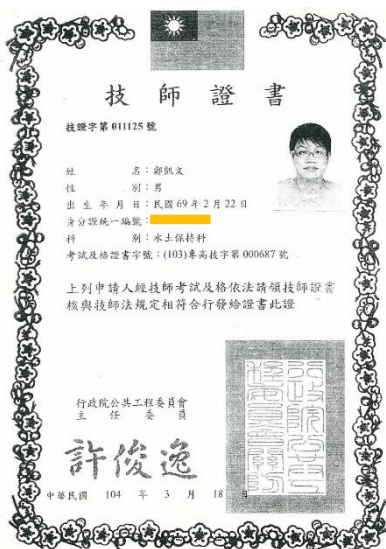 技師證書
技證字第011125號
姓名：鄭凱文
性別：男
出生年月日：民國69年2月22日
身分證統一編號：
科別：水土保持科
考試及格證書字號：(103)專高技字第000687號
上列申請人經技師考試及格依法請領技師證書
核與技師法規定相符合行發給證書此證
行政院公共工程委員會
主任委員
許俊逸
中華民國 104 年 3 月 18 日
行政院公共工程委員會關防